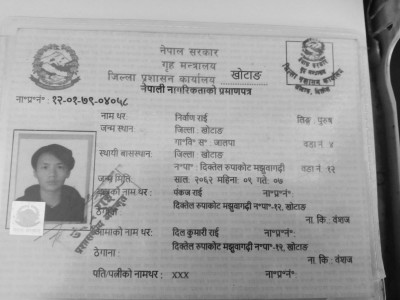 नेपाल सरकार
गृह मन्त्रालय
जिल्ला प्रशासन कार्यालय खोटाङ
नेपाली नागरिकताको प्रमाणपत्र
ना॰प्र॰नं॰: १२-०१-७९-०४०५८
नाम थर: निर्वाण राई लिङ्ग: पुरुष
जन्म स्थान: जिल्ला: खोटाङ
गा॰वि॰स॰: जालपा वडा नं ४
स्थायी बासस्थान: जिल्ला: खोटाङ
न॰पा॰: दिक्तेल रुपाकोट मझुवागढी वडा नं: १२
जन्म मिति: साल: २०६२ महिना: ०९ गते: ०७
बाबुको नाम थर: पंकज राई ना॰प्र॰नं॰:
ठेगाना: दिक्तेल रुपाकोट मझुवागढी न॰पा॰-१२, खोटाङ
ना. कि: वंशज
आमाको नाम थर: दिल कुमारी राई ना॰प्र॰नं॰:
ठेगाना: दिक्तेल रुपाकोट मझुवागढी न॰पा॰-१२, खोटाङ
ना. कि: वंशज
पति/पत्नीको नामथर: xxx ना॰प्र॰नं॰: